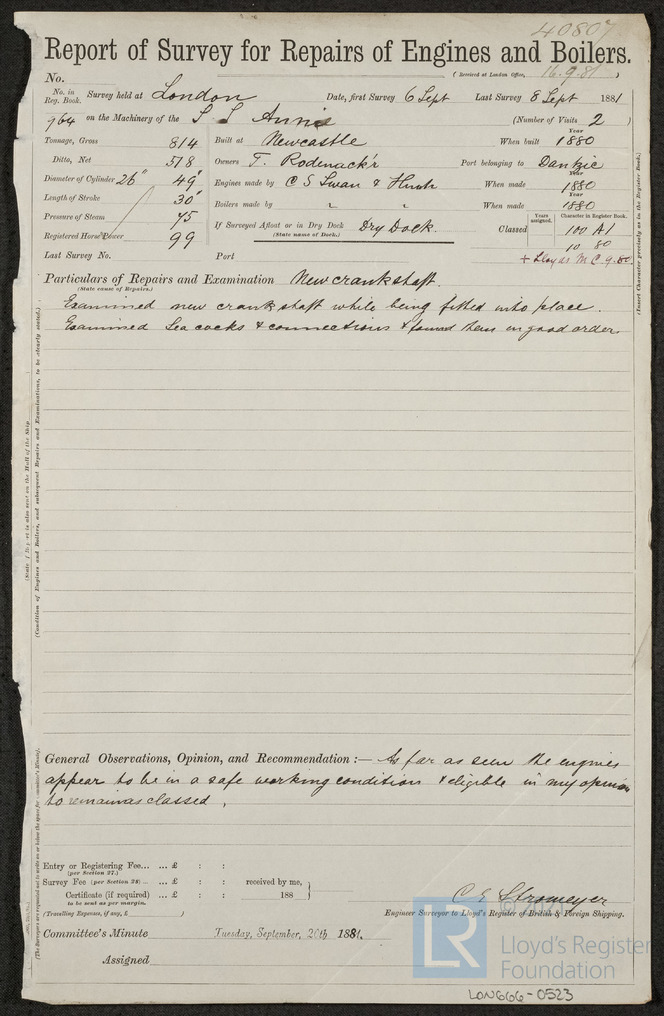 40807
Report of Survey for Repairs of Engines and Boilers.
No. (Received at London Office, 16.9.81)
No. in Reg. Book. Survey held at London Date, first Survey 6 Sept Last Survey 8 Sept 1881
964 on the Machinery of the S S Annie (Number of Visits 2)
Tonnage, Gross 814 Built at Newcastle When built Year 1880
Ditto, Net 518 Owners T. Rodenack'r Port belonging to Dantzic
Diameter of Cylinder 26" 49" Engines made by C S Swan & Hunter When made Year 1880
Length of Stroke 30" Boilers made by " " When made Year 1880
Pressure of Steam 75 If Surveyed Afloat or in Dry Dock Dry Dock. Classed Years assigned. Character in Register Book. 100 A1
(State name of Dock.)
Registered Horse Power 99 10 80
Last Survey No. Port + Lloyds M C 9.80
Particulars of Repairs and Examination New crankshaft.
(State name of Repairs.)
Examined new crankshaft while being fitted into place.
Examined Sea cocks & connections & found them in good order.
(Insert Character precisely as in the Register Book.)
(State if Report is also sent on the Hull of the Ship
(Condition of Engines and Boilers, and subsequent Repairs and Examinations, to be clearly stated.)
General Observations, Opinion, and Recommendation :— As far as seen the engines
appear to be in a safe working condition & eligible in my opinion
to remain as classed.
Entry or Registering Fee... ... £ : :
(per Section 27.)
Survey Fee (per Section 28) ... ... £ : : received by me,
Certificate (if required) ... £ : : 188
to be sent as per margin.
(Travelling Expenses, if any, £ )
C E Stromeyer
Engineer Surveyor to Lloyd's Register of British & Foreign Shipping.
Committee's Minute Tuesday, September, 20th 1881.
Assigned
LR
Lloyd's Register
Foundation
LON666-0523